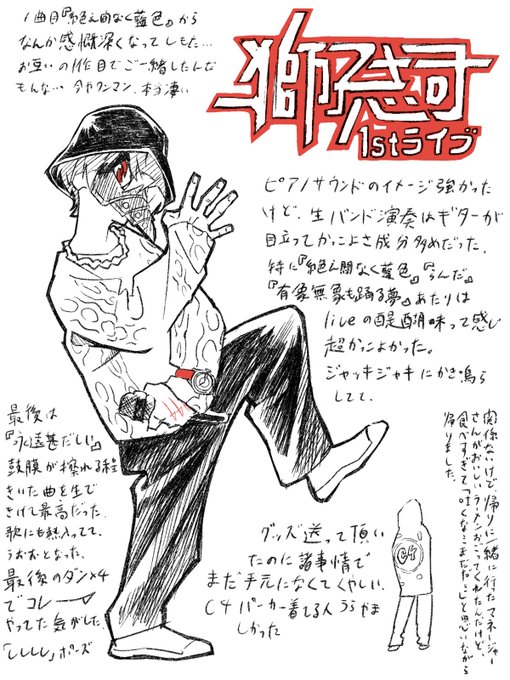 1曲目『絶え間なく藍色』から
なんか感慨深くなってしもた…
お互いの1作目でご一緒したんだ
もんな… 今やワンマン、本当凄い
獅子志司
1stライブ
ピアノサウンドのイメージ強かった
けど、生バンド演奏はギターが
目立ってかっこよさ成分多めだった。
特に『絶え間なく藍色』『らんだ』
『有象無象も踊る夢』あたりは
liveの醍醐味って感じ
超かっこよかった。
ジャッキジャキにかき鳴ら
してて。
最後は
『永遠甚だしい』
鼓膜が擦れる程
きいた曲を生で
きけて最高だった。
歌にも熱入ってて、
うおおとなった。
最後のダン×4
でコレ
やってた気がした
「しししし」ポーズ
グッズ送って頂い
たのに諸事情で
まだ手元になくてくやしい。
C4パーカー着てる人うらやま
しかった
C4
関係ないけど帰りに一緒に行ったマネージャー
さんがおいしいラーメンおごってくれたんだけど、
食べすぎて「吐くなこまだだ…」と思いながら
帰りました。